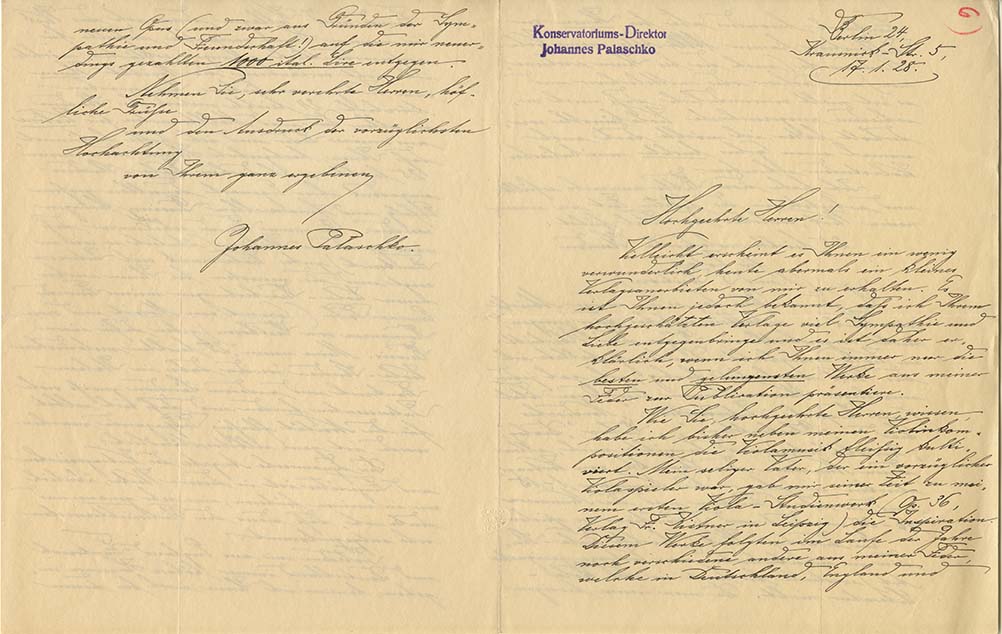 neuen Opus (und zwar aus Gründen der Sym-
pathie und Freundschaft!) auf die mir neuer-
dings gezahlten 1000 ital. Lire entgegen.
Nehmen Sie, sehr verehrte Herren, höf-
liche Grüße
und den Ausdruck der vorzüglichsten
Hochachtung
von Ihrem ganz ergebenen
Johannes Palaschko.
6
Konservatoriums-Direktor
Johannes Palaschko
Berlin 24,
Str. 5,
17.1.28.
Hochgeehrte Herren!
Vielleicht erscheint es Ihnen ein wenig
verwunderlich, heute abermals ein kleines
Verlagsanerbieten von mir zu erhalten. Es
ist Ihnen jedoch bekannt, daß ich Ihrem
hochgeschätzten Verlage viel Sympathie und
Liebe entgegenbringe und es ist daher er-
klärlich, wenn ich Ihnen immer nur die
besten und gelungensten Werke aus meiner
Feder zur Publikation präsentiere.
Wie Sie, hochgeehrte Herren, wissen
habe ich bisher neben meinen Violinkom-
positionen die Violamusik fleißig kulti-
viert. Mein seliger Vater, der ein vorzüglicher
Violaspieler war, gab mir seiner Zeit zu mei-
nem ersten Viola-Studienwerk (Op. 36,
Verlag Fr. Kistner in Leipzig) die Inspiration.
Diesem Werke folgten im Laufe der Jahre
noch verschiedene andere aus meiner Feder,
welche in Deutschland, England und